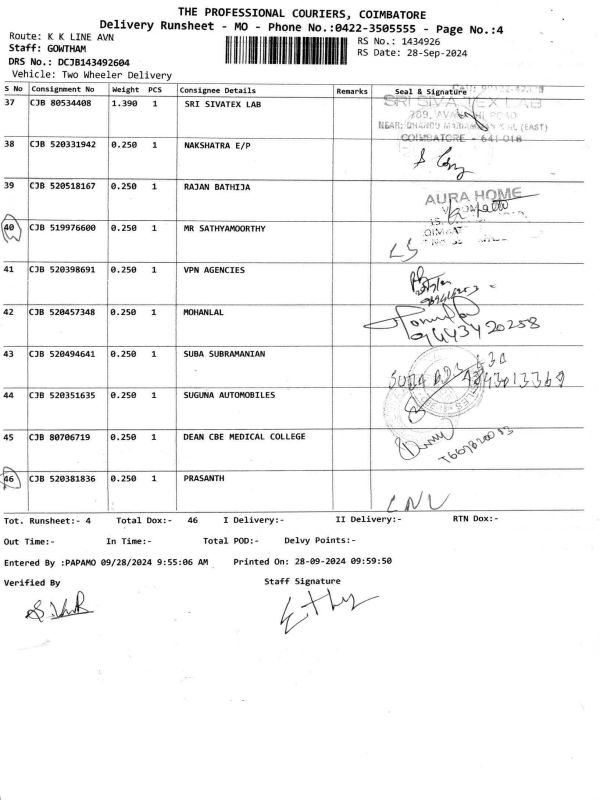 THE PROFESSIONAL COURIERS, COIMBATORE
Delivery Runsheet - MO - Phone No.:0422-3505555 - Page No.:4
Route: K K LINE AVN
RS No.: 1434926
Staff: GOWTHAM
RS Date: 28-Sep-2024
DRS No.: DCJB143492604
Vehicle: Two Wheeler Delivery
S No Consignment No Weight PCS Consignee Details Remarks Seal & Signature
37 CJB 80534408 1.390 1 SRI SIVATEX LAB
SRI SIVATEX LAB
COIMBATORE - 641 018
38 CJB 520331942 0.250 1 NAKSHATRA E/P
39 CJB 520518167 0.250 1 RAJAN BATHIJA
AURA HOME
40 CJB 519976600 0.250 1 MR SATHYAMOORTHY
LS
41 CJB 520398691 0.250 1 VPN AGENCIES
42 CJB 520457348 0.250 1 MOHANLAL
9443420258
43 CJB 520494641 0.250 1 SUBA SUBRAMANIAN
44 CJB 520351635 0.250 1 SUGUNA AUTOMOBILES
45 CJB 80706719 0.250 1 DEAN CBE MEDICAL COLLEGE
46 CJB 520381836 0.250 1 PRASANTH
Tot. Runsheet:- 4 Total Dox:- 46 I Delivery:- II Delivery:- RTN Dox:-
Out Time:- In Time:- Total POD:- Delvy Points:-
Entered By :PAPAMO 09/28/2024 9:55:06 AM Printed On: 28-09-2024 09:59:50
Verified By Staff Signature